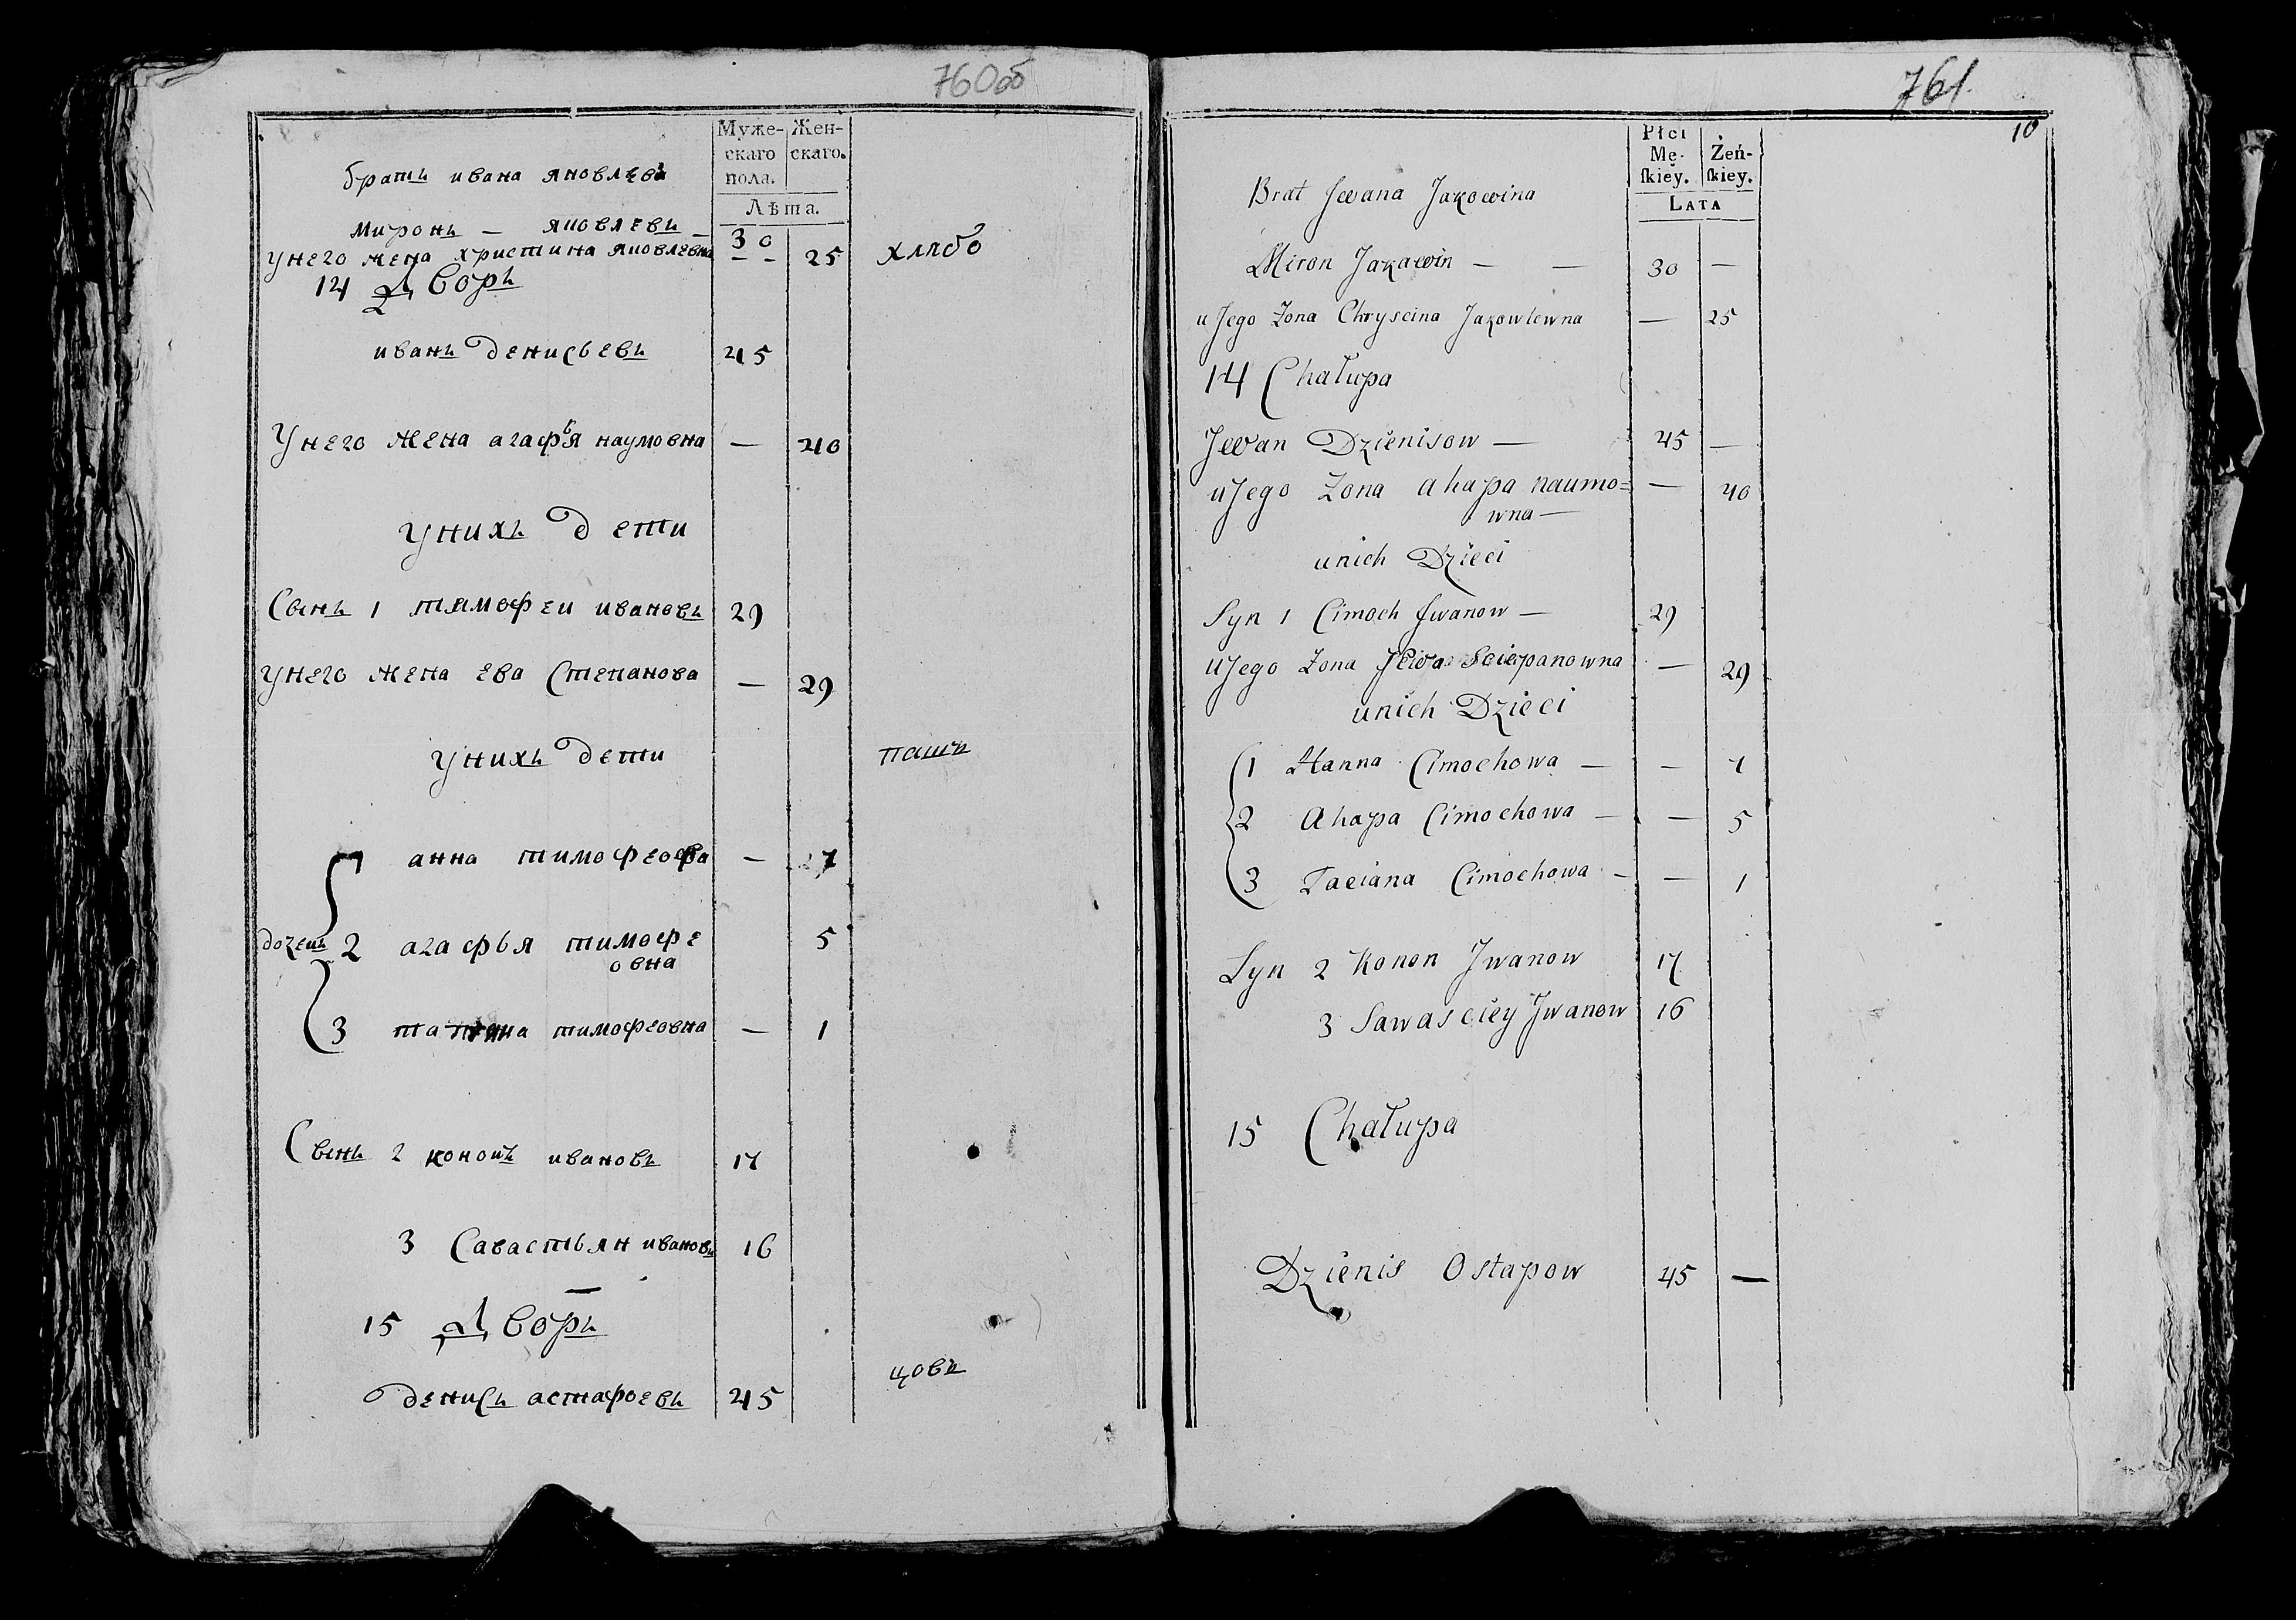 760об
Муже- Жен-
скаго скаго.
пола.
Лѣта.
братъ ивана яковлева
миронъ — яковлевъ — 30
унего жена христина яковлевна - - 25 хлѣбо
14 Дворъ
иванъ денисьевъ 45
Унего жена агафья наумовна — 40
унихъ дети
Сынъ 1 тимофеи ивановъ 29
унего жена ева Степанова — 29
унихъ дети пашъ
1 анна тимофеова — 7
дочеи 2 агафья тимофе 5
овна
3 татяна тимофеовна — 1
Сынъ 2 кононъ ивановъ 17
3 Савастьян ивановъ 16
15 Дворъ
цовъ
денисъ астафьевъ 45
761.
10
Płci
Mę- Żeń-
skiey. skiey.
LATA
Brat Jwana Jakowina
Miron Jakawin — — 30 —
u Jego Żona Chryscina Jakowlewna — 25
14 Chałupa
Jwan Dzienisow — 45 —
u Jego Żona ahapa naumo= — 40
wna —
unich Dzieci
Syn 1 Cimoch Jwanow — 29
u Jego Żona Jewa Sciepanowna — 29
unich Dzieci
1 Hanna Cimochowa — — 7
2 Ahapa Cimochowa — — 5
3 Taciana Cimochowa - — 1
Syn 2 Konon Jwanow 17
3 Sawasciey Jwanow 16
15 Chałupa
Dzienis Ostapow 45 —